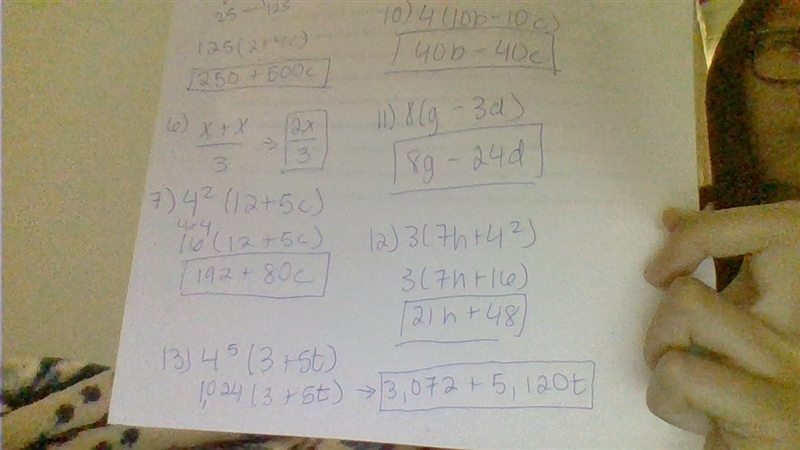 25 → 125
125(2+4c)
250 + 500c
6) x + x / 3 → 2x / 3
7) 4² (12+5c)
4×4
16 (12+5c)
192 + 80c
10) 4(10b-10c)
40b - 40c
11) 8(g - 3d)
8g - 24d
12) 3(7h+4²)
3(7h+16)
21h + 48
13) 4⁵ (3+5t)
1,024 (3+5t) → 3,072 + 5,120t